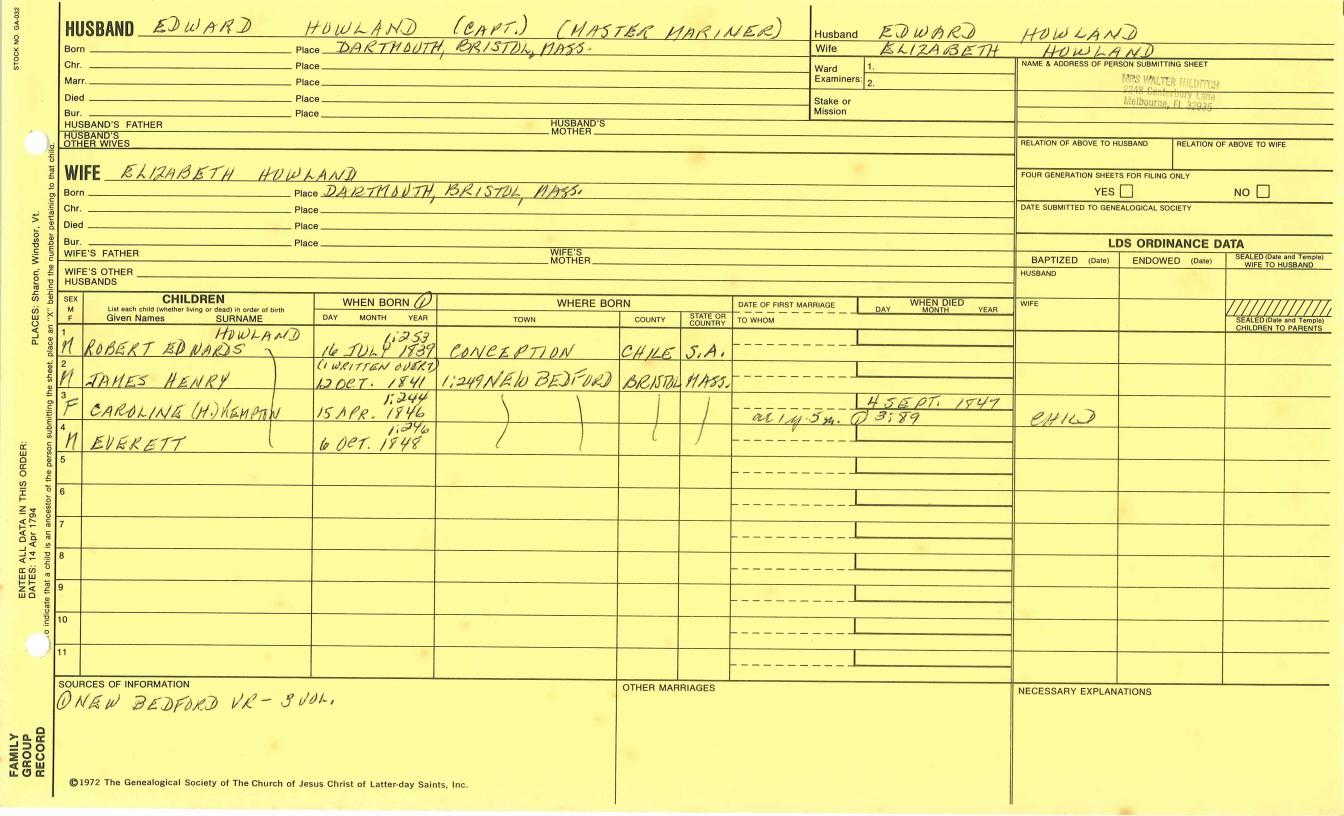 STOCK NO. GA-032
HUSBAND EDWARD HOWLAND (CAPT.) (MASTER MARINER)
Born Place DARTMOUTH, BRISTOL, MASS.
Chr. Place
Marr. Place
Died Place
Bur. Place
HUSBAND'S FATHER HUSBAND'S MOTHER
HUSBAND'S OTHER WIVES
Husband EDWARD HOWLAND
Wife ELIZABETH HOWLAND
Ward Examiners: 1.
2.
Stake or Mission
NAME & ADDRESS OF PERSON SUBMITTING SHEET
MRS WALTER HILDITCH
2248 Canterbury Lane
Melbourne, FL 32935
RELATION OF ABOVE TO HUSBAND RELATION OF ABOVE TO WIFE
FOUR GENERATION SHEETS FOR FILING ONLY
YES NO
DATE SUBMITTED TO GENEALOGICAL SOCIETY
WIFE ELIZABETH HOWLAND
Born Place DARTMOUTH, BRISTOL, MASS.
Chr. Place
Died Place
Bur. Place
WIFE'S FATHER WIFE'S MOTHER
WIFE'S OTHER HUSBANDS
LDS ORDINANCE DATA
BAPTIZED (Date) ENDOWED (Date) SEALED (Date and Temple) WIFE TO HUSBAND
HUSBAND
WIFE
SEALED (Date and Temple) CHILDREN TO PARENTS
SEX M F
CHILDREN
List each child (whether living or dead) in order of birth
Given Names SURNAME
WHEN BORN ①
DAY MONTH YEAR
WHERE BORN
TOWN COUNTY STATE OR COUNTRY
DATE OF FIRST MARRIAGE
TO WHOM
WHEN DIED
DAY MONTH YEAR
1 HOWLAND 1:253
M ROBERT EDWARDS 16 JULY 1839 CONCEPTION CHILE S.A.
2 (1 WRITTEN OVER 7)
M JAMES HENRY 12 OCT. 1841 1:249 NEW BEDFORD BRISTOL MASS.
3 1:244 4 SEPT. 1847
F CAROLINE (H.) KEMPTON 15 APR. 1846 ae 1y. 5m. ① 3:89 CHILD
4 1:246
M EVERETT 6 OCT. 1848
5
6
7
8
9
10
11
SOURCES OF INFORMATION
① NEW BEDFORD VR - 3 VOL.
OTHER MARRIAGES
NECESSARY EXPLANATIONS
©1972 The Genealogical Society of The Church of Jesus Christ of Latter-day Saints, Inc.
FAMILY GROUP RECORD
ENTER ALL DATA IN THIS ORDER:
DATES: 14 Apr 1794
PLACES: Sharon, Windsor, Vt.
o indicate that a child is an ancestor of the person submitting the sheet, place an "X" behind the number pertaining to that child.